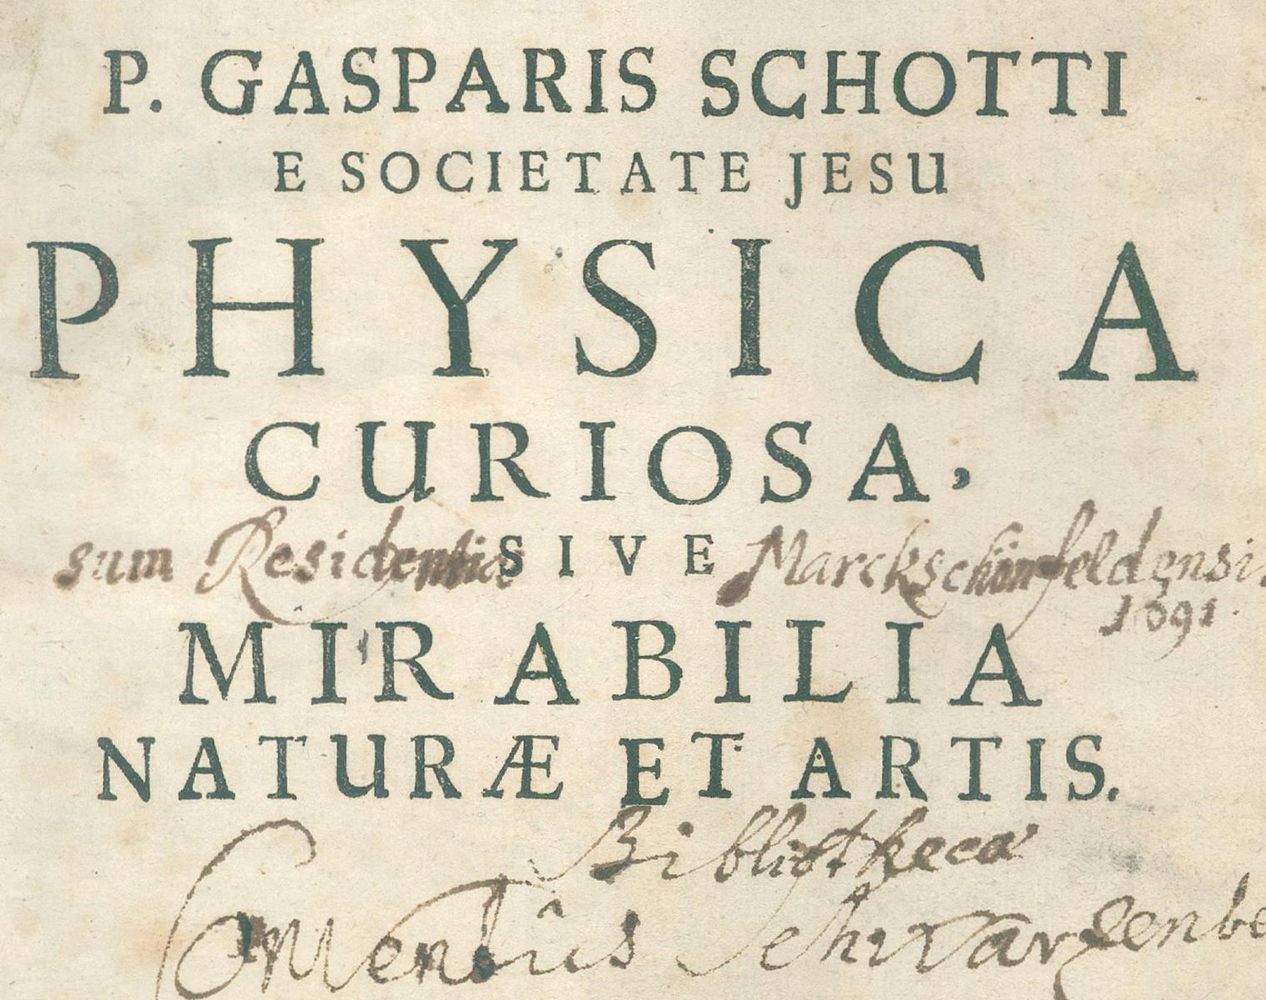 P. GASPARIS SCHOTTI
E SOCIETATE JESU
PHYSICA
CURIOSA,
sum Residentia SIVE Marckschönfeldensi.
1691.
MIRABILIA
NATURÆ ET ARTIS.
Bibliotheca
Conventûs Schwarzenbe